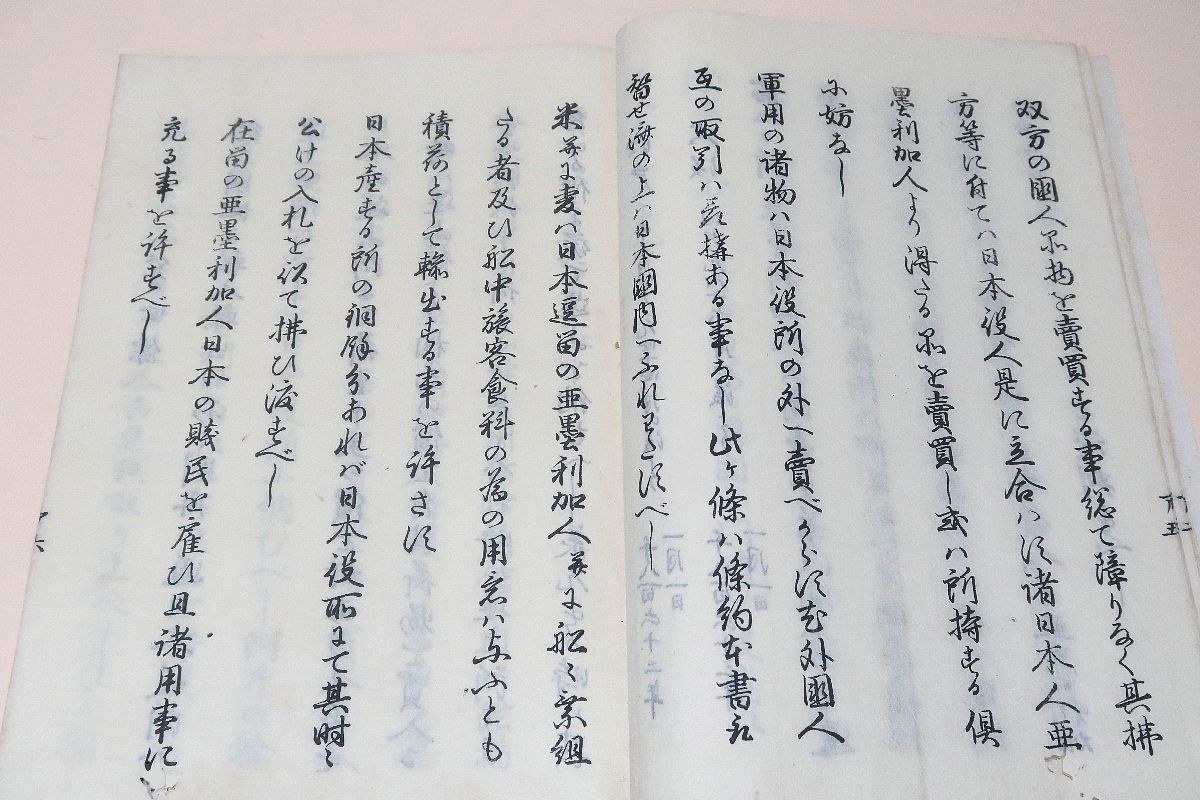 双方の國人品物を賣買する事総て障りなく其拂
方等に付てハ日本役人是に立合ハす諸日本人亜
墨利加人より得たる品を賣買し或ハ所持する倶
に妨なし
軍用の諸物ハ日本役所の外へ賣べからす尤外國人
互の取引ハ差搆ある事なし此ヶ條ハ條約本書取
替せ済の上ハ日本國内へふれわたすべし
米并に麦ハ日本逗留の亜墨利加人并に船に乗組
たる者及ひ船中旅客食料の為の用意ハ与ふとも
積荷として輸出する事を許さす
日本産する所の銅餘分あれバ日本役所にて其時に
公けの入札を以て拂ひ渡すべし
在留の亜墨利加人日本の賎民を雇ひ且諸用事に
充る事を許すべし